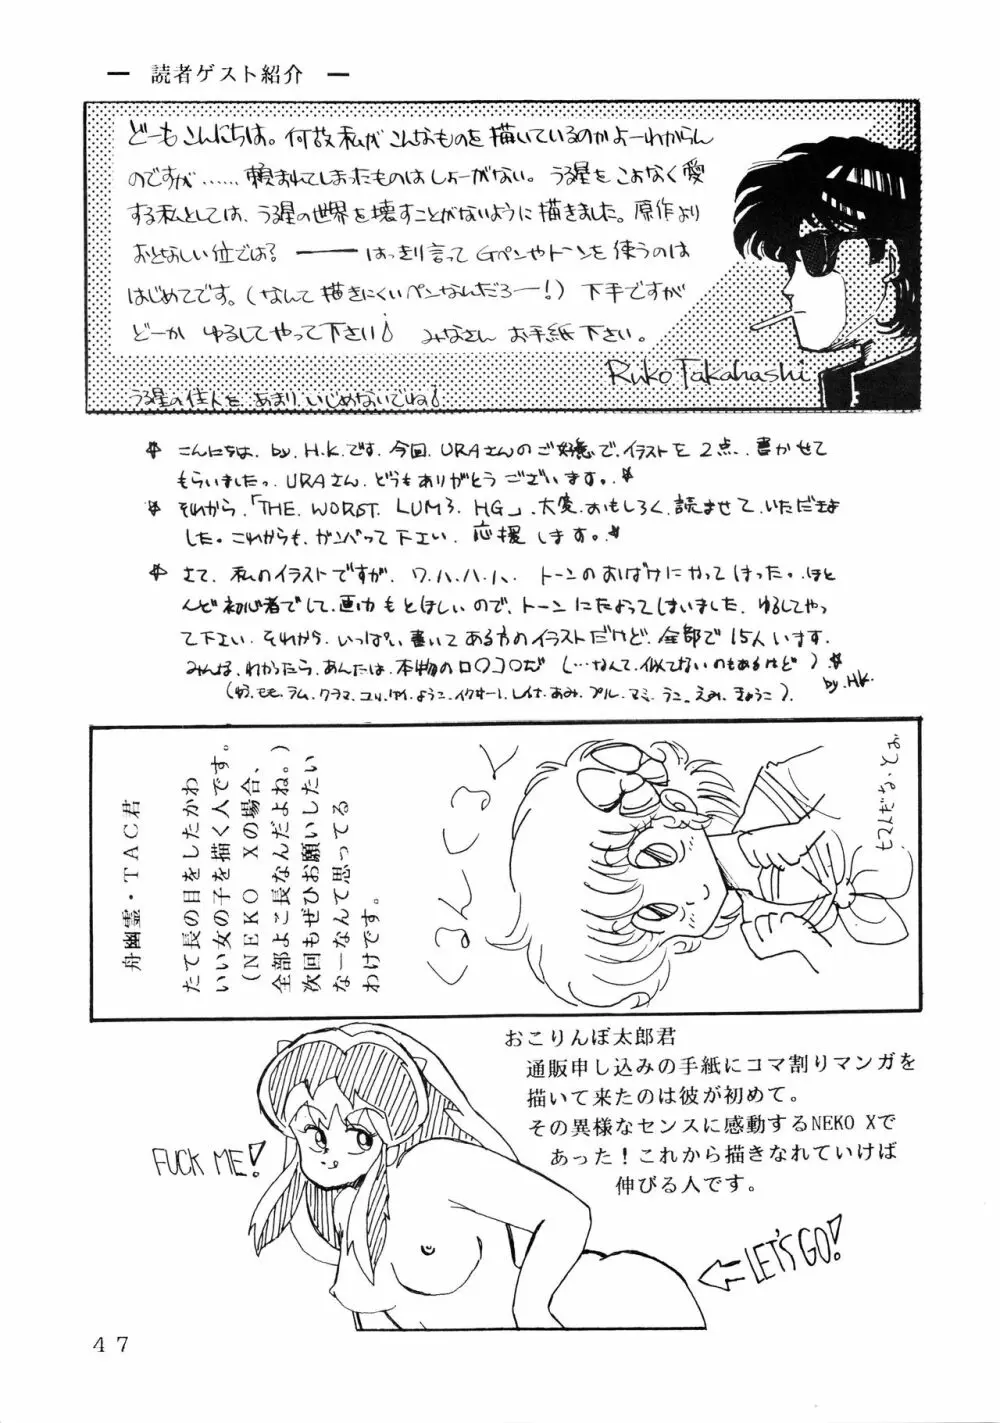 ― 読者ゲスト紹介 ―
どーもこんにちは。何故私がこんなものを描いているのかよーわからん
のですが……頼まれてしまったものはしょーがない。うる星をこよなく愛
する私としては、うる星の世界を壊すことがないように描きました。原作より
おとなしい位では? ――― はっきり言ってGペンやトーンを使うのは
はじめてです。(なんて描きにくいペンなんだろー!)下手ですが
どーか ゆるしてやって下さい♪ みなさん お手紙 下さい。
Ruko Takahashi
うる星の住人を あまり いじめないでね♪
☆ こんにちは、by.H.K.です。今回、URAさんのご好意で、イラストを2点、書かせて
もらいましたっ。URAさん、どうもありがとうございます。☆
☆ それから、「THE WORST LUM3. HG」、大変、おもしろく、読ませて、いただきま
した。これからも、ガンバって下さい、応援します。☆
☆ さて、私のイラストですが、ワ.ハ.ハ.ハ、トーンのおばけになってしまった。ほと
んど初心者でして、画力もとぼしいので、トーンにたよってしまいました、ゆるしてやっ
て下さい、それから、いっぱい、書いてある方のイラストだけど、全部で15人います、
みんな、わかったら、あんたは、本物のロ〇コ〇だ (…なんて、似てないのもあるけど)☆
by.H.K.
舟幽霊・TAC君
たて長の目をしたかわ
いい女の子を描く人です。
(NEKO Xの場合、
全部よこ長なんだよね。)
次回もぜひお願いしたい
なーなんて思ってる
わけです。
くるんくるんっ
おこりんぼ太郎君
通販申し込みの手紙にコマ割りマンガを
描いて来たのは彼が初めて。
その異様なセンスに感動するNEKO Xで
あった!これから描きなれていけば
伸びる人です。
FUCK ME!
LET'S GO!
47